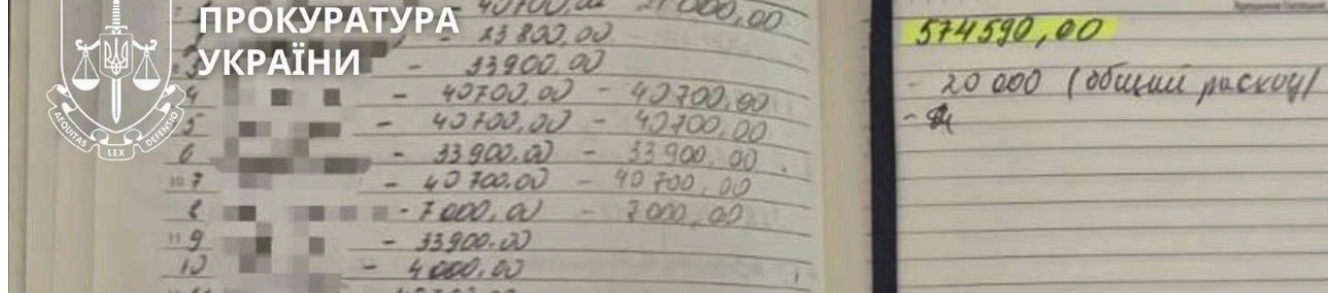 ПРОКУРАТУРА
УКРАЇНИ
AEQUITAS LEX DEFENSIO
- 40700,00 21000,00
- 23800,00
3 - 33900.00
4 - 40700,00 - 40700,00
5 - 40700,00 - 40700,00
6 - 33900.00 - 33900,00
10 7 - 40700.00 - 40700,00
8 - 7000,00 - 7000,00
11 9 - 33900.00
10 - 4000,00
574590,00
- 20 000 (общий расход)
-